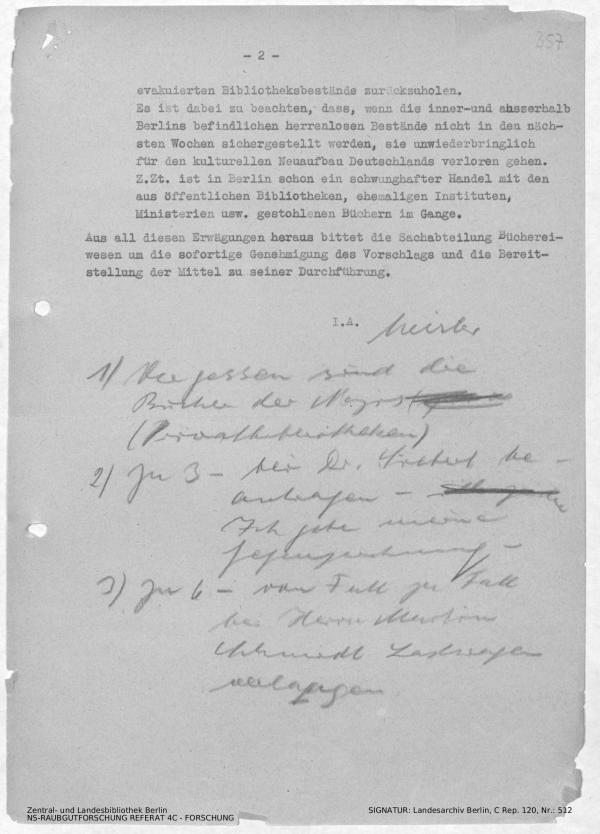 - 2 -
357
evakuierten Bibliotheksbestände zurückzuholen.
Es ist dabei zu beachten, dass, wenn die inner-und ahsserhalb
Berlins befindlichen herrenlosen Bestände nicht in den näch-
sten Wochen sichergestellt werden, sie unwiederbringlich
für den kulturellen Neuaufbau Deutschlands verloren gehen.
Z.Zt. ist in Berlin schon ein schwunghafter Handel mit den
aus öffentlichen Bibliotheken, ehemaligen Instituten,
Ministerien usw. gestohlenen Büchern im Gange.
Aus all diesen Erwägungen heraus bittet die Sachabteilung Bücherei-
wesen um die sofortige Genehmigung des Vorschlags und die Bereit-
stellung der Mittel zu seiner Durchführung.
I.A.
1) Vergessen sind die
Bücher der Nazis
(Privatbibliotheken)
2) Zu 3 - bei Dr. be-
antragen -
Ich gebe meine
Gegenzeichnung -
3) Zu 6 - von Fall zu Fall
bei Herrn Martin
Schmidt Lastwagen
verlangen
Zentral- und Landesbibliothek Berlin
NS-RAUBGUTFORSCHUNG REFERAT 4C - FORSCHUNG
SIGNATUR: Landesarchiv Berlin, C Rep. 120, Nr.: 512